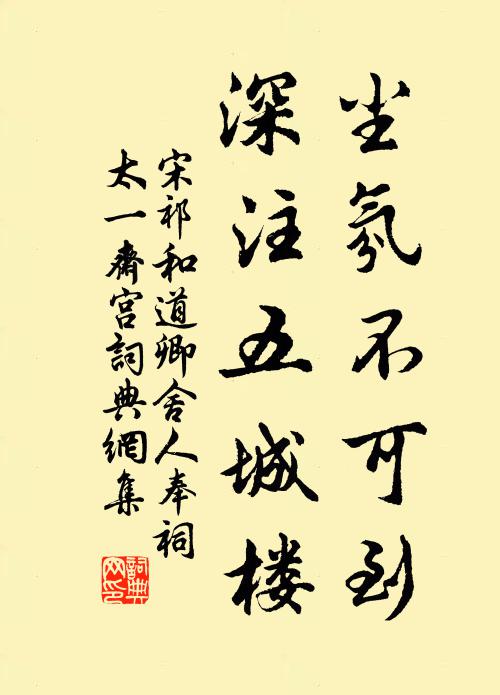 尘氛不可到
深注五城楼
宋祁和道卿舍人奉祠
太一斋宫詞典網集
詞典网印